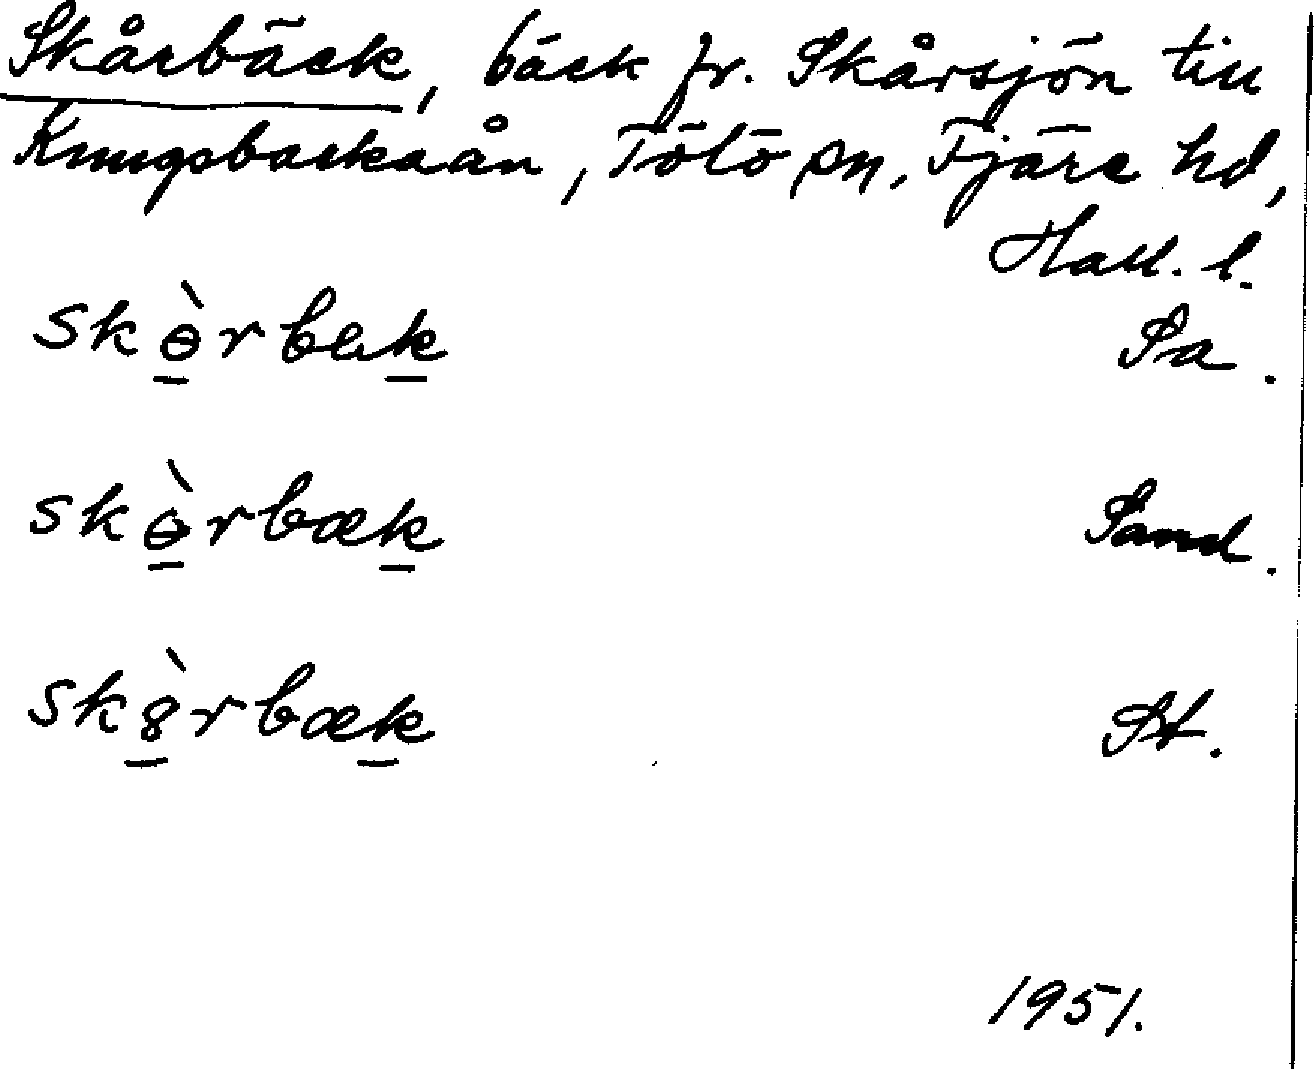 Skårbäck, bäck fr. Skårsjön till
Kungsbackaån, Tölö sn, Fjäre hd,
Hall. l.
skɵ̀rbæk Sa.
skɵ̀rbæk Sand.
sk8̀rbæk St.
1951.